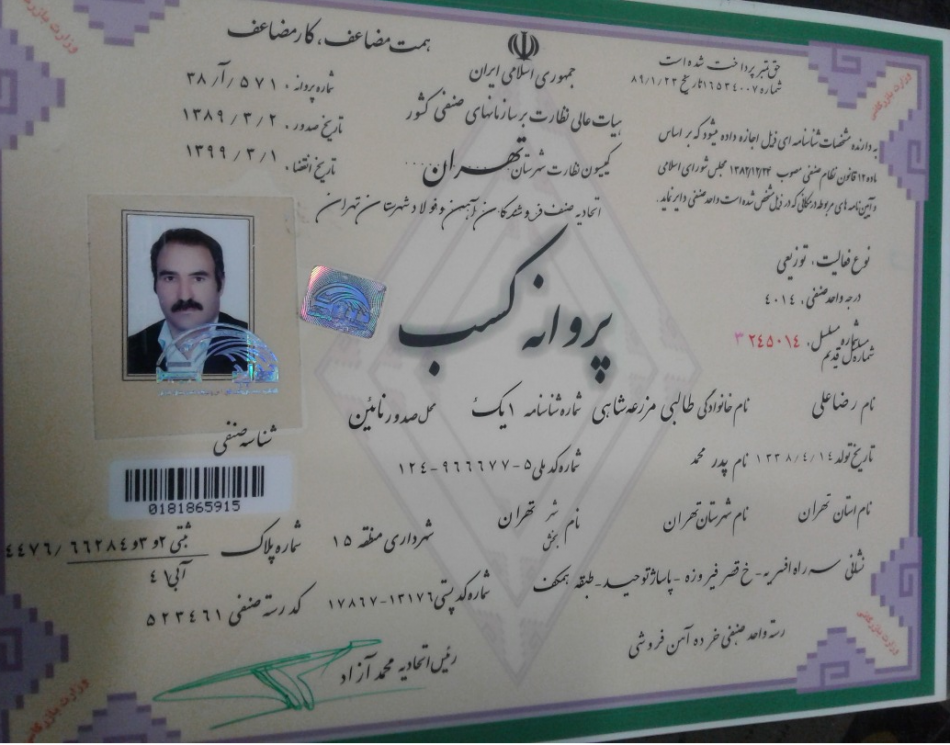 همت مضاعف، کار مضاعف
جمهوری اسلامی ایران
هیات عالی نظارت بر سازمانهای صنفی کشور
کمیسیون نظارت شهرستان تهران
اتحادیه صنف فروشندگان آهن و فولاد شهرستان تهران
حق تمبر پرداخت شده است
شماره ۱۶۵۳۴۰۰۷ تاریخ ۸۹/۱/۲۳
به دارنده مشخصات شناسنامه ای ذیل اجازه داده میشود که بر اساس
ماده ۱۲ قانون نظام صنفی مصوب ۱۳۸۲/۱۲/۲۴ مجلس شورای اسلامی
و آیین نامه های مربوطه در مکانی که در ذیل مشخص شده است واحد صنفی دایر نماید.
شماره پروانه . ۳۸ /آ/ ۵۷۱
تاریخ صدور . ۱۳۸۹/۳/۲
تاریخ انقضا . ۱۳۹۹/۳/۱
پروانه کسب
نوع فعالیت . توزیعی
درجه واحد صنفی . ۴۰۱۴
شماره مسلسل . ۲۴۵۰۱۴ ۳
شماره مسلسل قدیم
نام رضاعلی نام خانوادگی طالبی مزرعه شاهی شماره شناسنامه ۱ یک محل صدور نائین
تاریخ تولد ۱۳۳۸/۴/۱۴ نام پدر محمد شماره کد ملی ۵-۹۶۶۶۷۷-۱۲۴
شناسه صنفی
0181865915
نام استان تهران نام شهرستان تهران نام شهر بخش تهران شهرداری منطقه ۱۵ شماره پلاک ثبتی ۲و۳و۶۶۲۸۴/۴۴۷۶
آبی ۴۱
نشانی سه راه افسریه - خ قصر فیروزه - پاساژ توحید - طبقه همکف شماره کد پستی ۱۳۱۷۶-۱۷۸۶۷ کد رسته صنفی ۵۲۳۴۶۱
رسته واحد صنفی خرده آهن فروشی
رئیس اتحادیه محمد آزاد
وزارت بازرگانی
وزارت بازرگانی
وزارت بازرگانی
وزارت بازرگانی